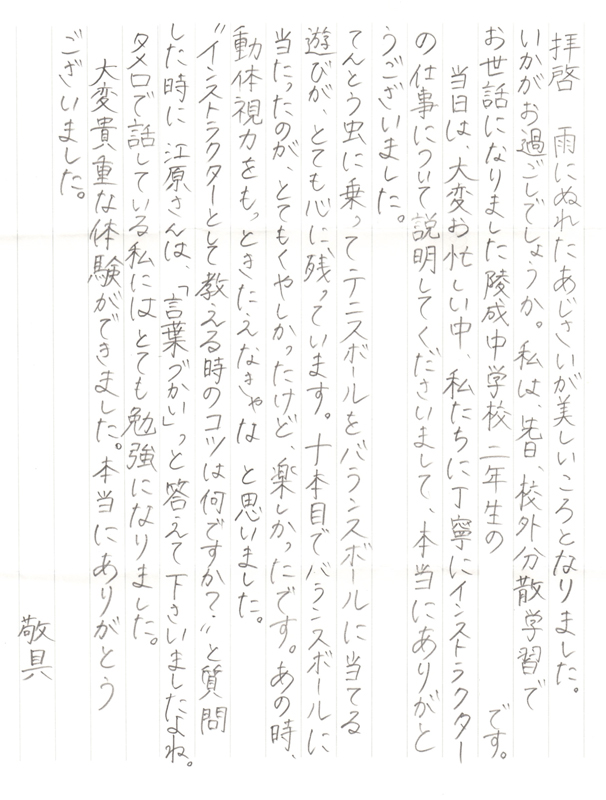 拝啓　雨にぬれたあじさいが美しいころとなりました。
いかがお過ごしでしょうか。私は、先日、校外分散学習で
お世話になりました陵成中学校 二年生の　　　　　です。
当日は、大変お忙しい中、私たちに丁寧にインストラクター
の仕事について説明してくださいまして、本当にありがと
うございました。
てんとう虫に乗ってテニスボールをバランスボールに当てる
遊びが、とても心に残っています。十本目でバランスボールに
当たったのが、とてもくやしかったけど、楽しかったです。あの時、
動体視力をもっときたえなきゃな と思いました。
〝インストラクターとして教える時のコツは何ですか？〟と質問
した時に 江原さんは、「言葉づかい」っと答えて下さいましたよね。
タメ口で話している私にはとても勉強になりました。
大変貴重な体験ができました。本当にありがとう
ございました。
敬具